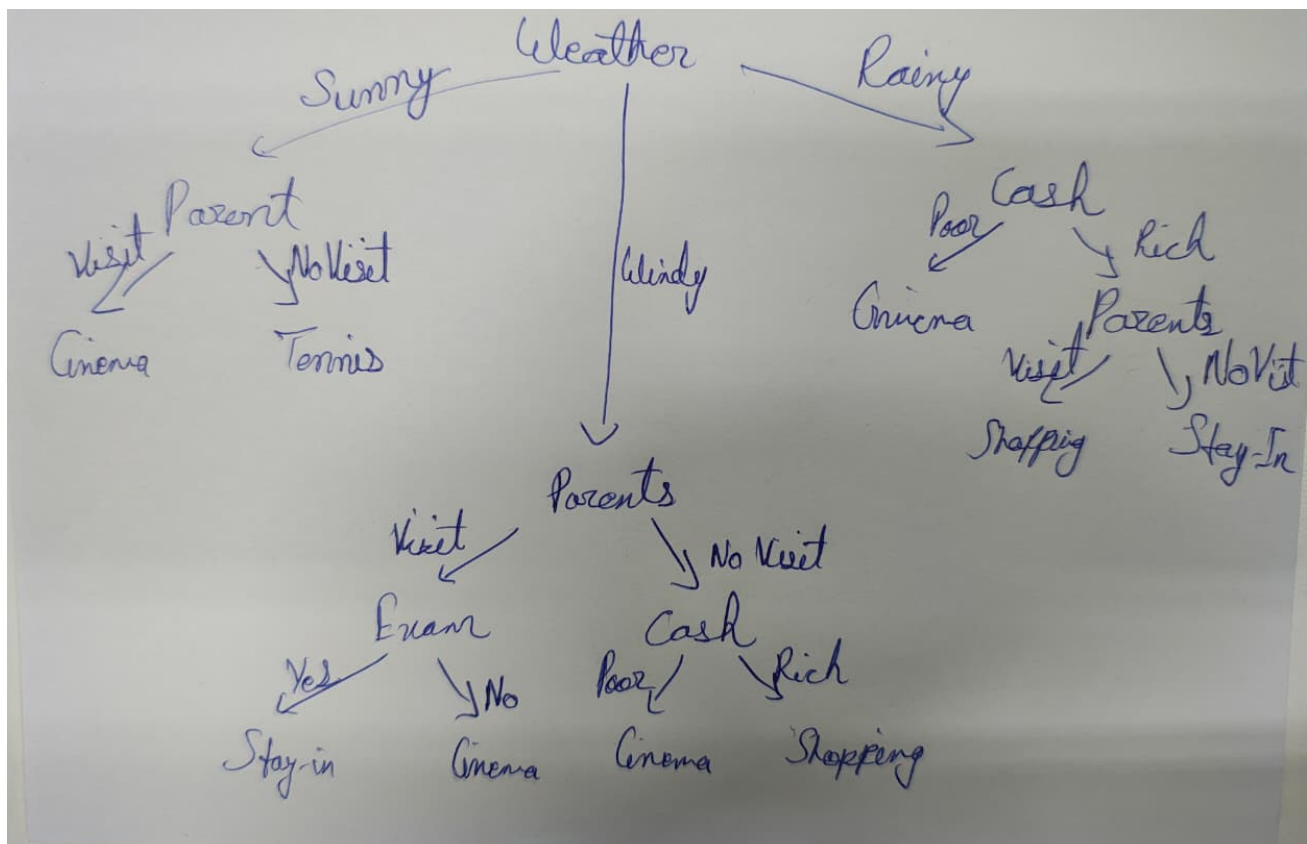 Weather
Sunny
Rainy
Parent
Cash
Visit
No Visit
Windy
Poor
Rich
Cinema
Tennis
Cinema
Parents
Visit
No Visit
Shopping
Stay-In
Parents
Visit
No Visit
Exam
Cash
Yes
No
Poor
Rich
Stay-in
Cinema
Cinema
Shopping